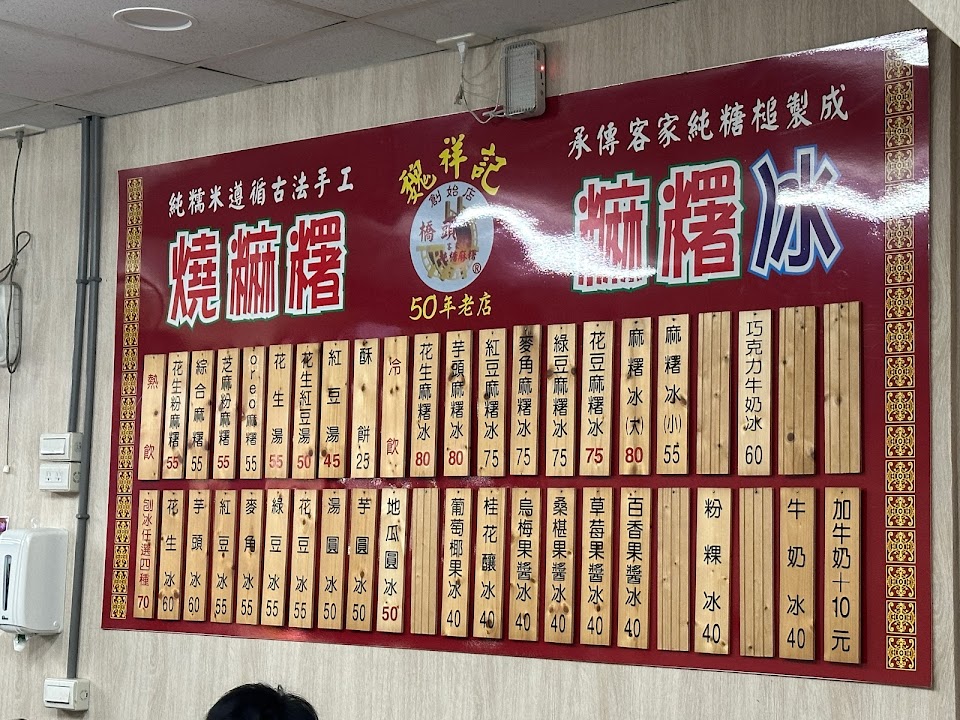 純糯米遵循古法手工
燒麻糬
魏祥記
創始店
橋頭
50年老店
承傳客家純糖槌製成
麻糬冰
熱飲
花生粉麻糬 55
綜合麻糬 55
芝麻粉麻糬 55
oreo麻糬 55
花生湯 55
花生紅豆湯 50
紅豆湯 45
酥餅 25
冷飲
花生麻糬冰 80
芋頭麻糬冰 80
紅豆麻糬冰 75
麥角麻糬冰 75
綠豆麻糬冰 75
花豆麻糬冰 75
麻糬冰(大) 80
麻糬冰(小) 55
巧克力牛奶冰 60
刨冰任選四種 70
花生冰 60
芋頭冰 60
紅豆冰 55
麥角冰 55
綠豆冰 55
花豆冰 55
湯圓冰 50
芋圓冰 50
地瓜圓冰 50
葡萄椰果冰 40
桂花釀冰 40
烏梅果醬冰 40
桑椹果醬冰 40
草莓果醬冰 40
百香果醬冰 40
粉粿冰 40
牛奶冰 40
加牛奶十10元